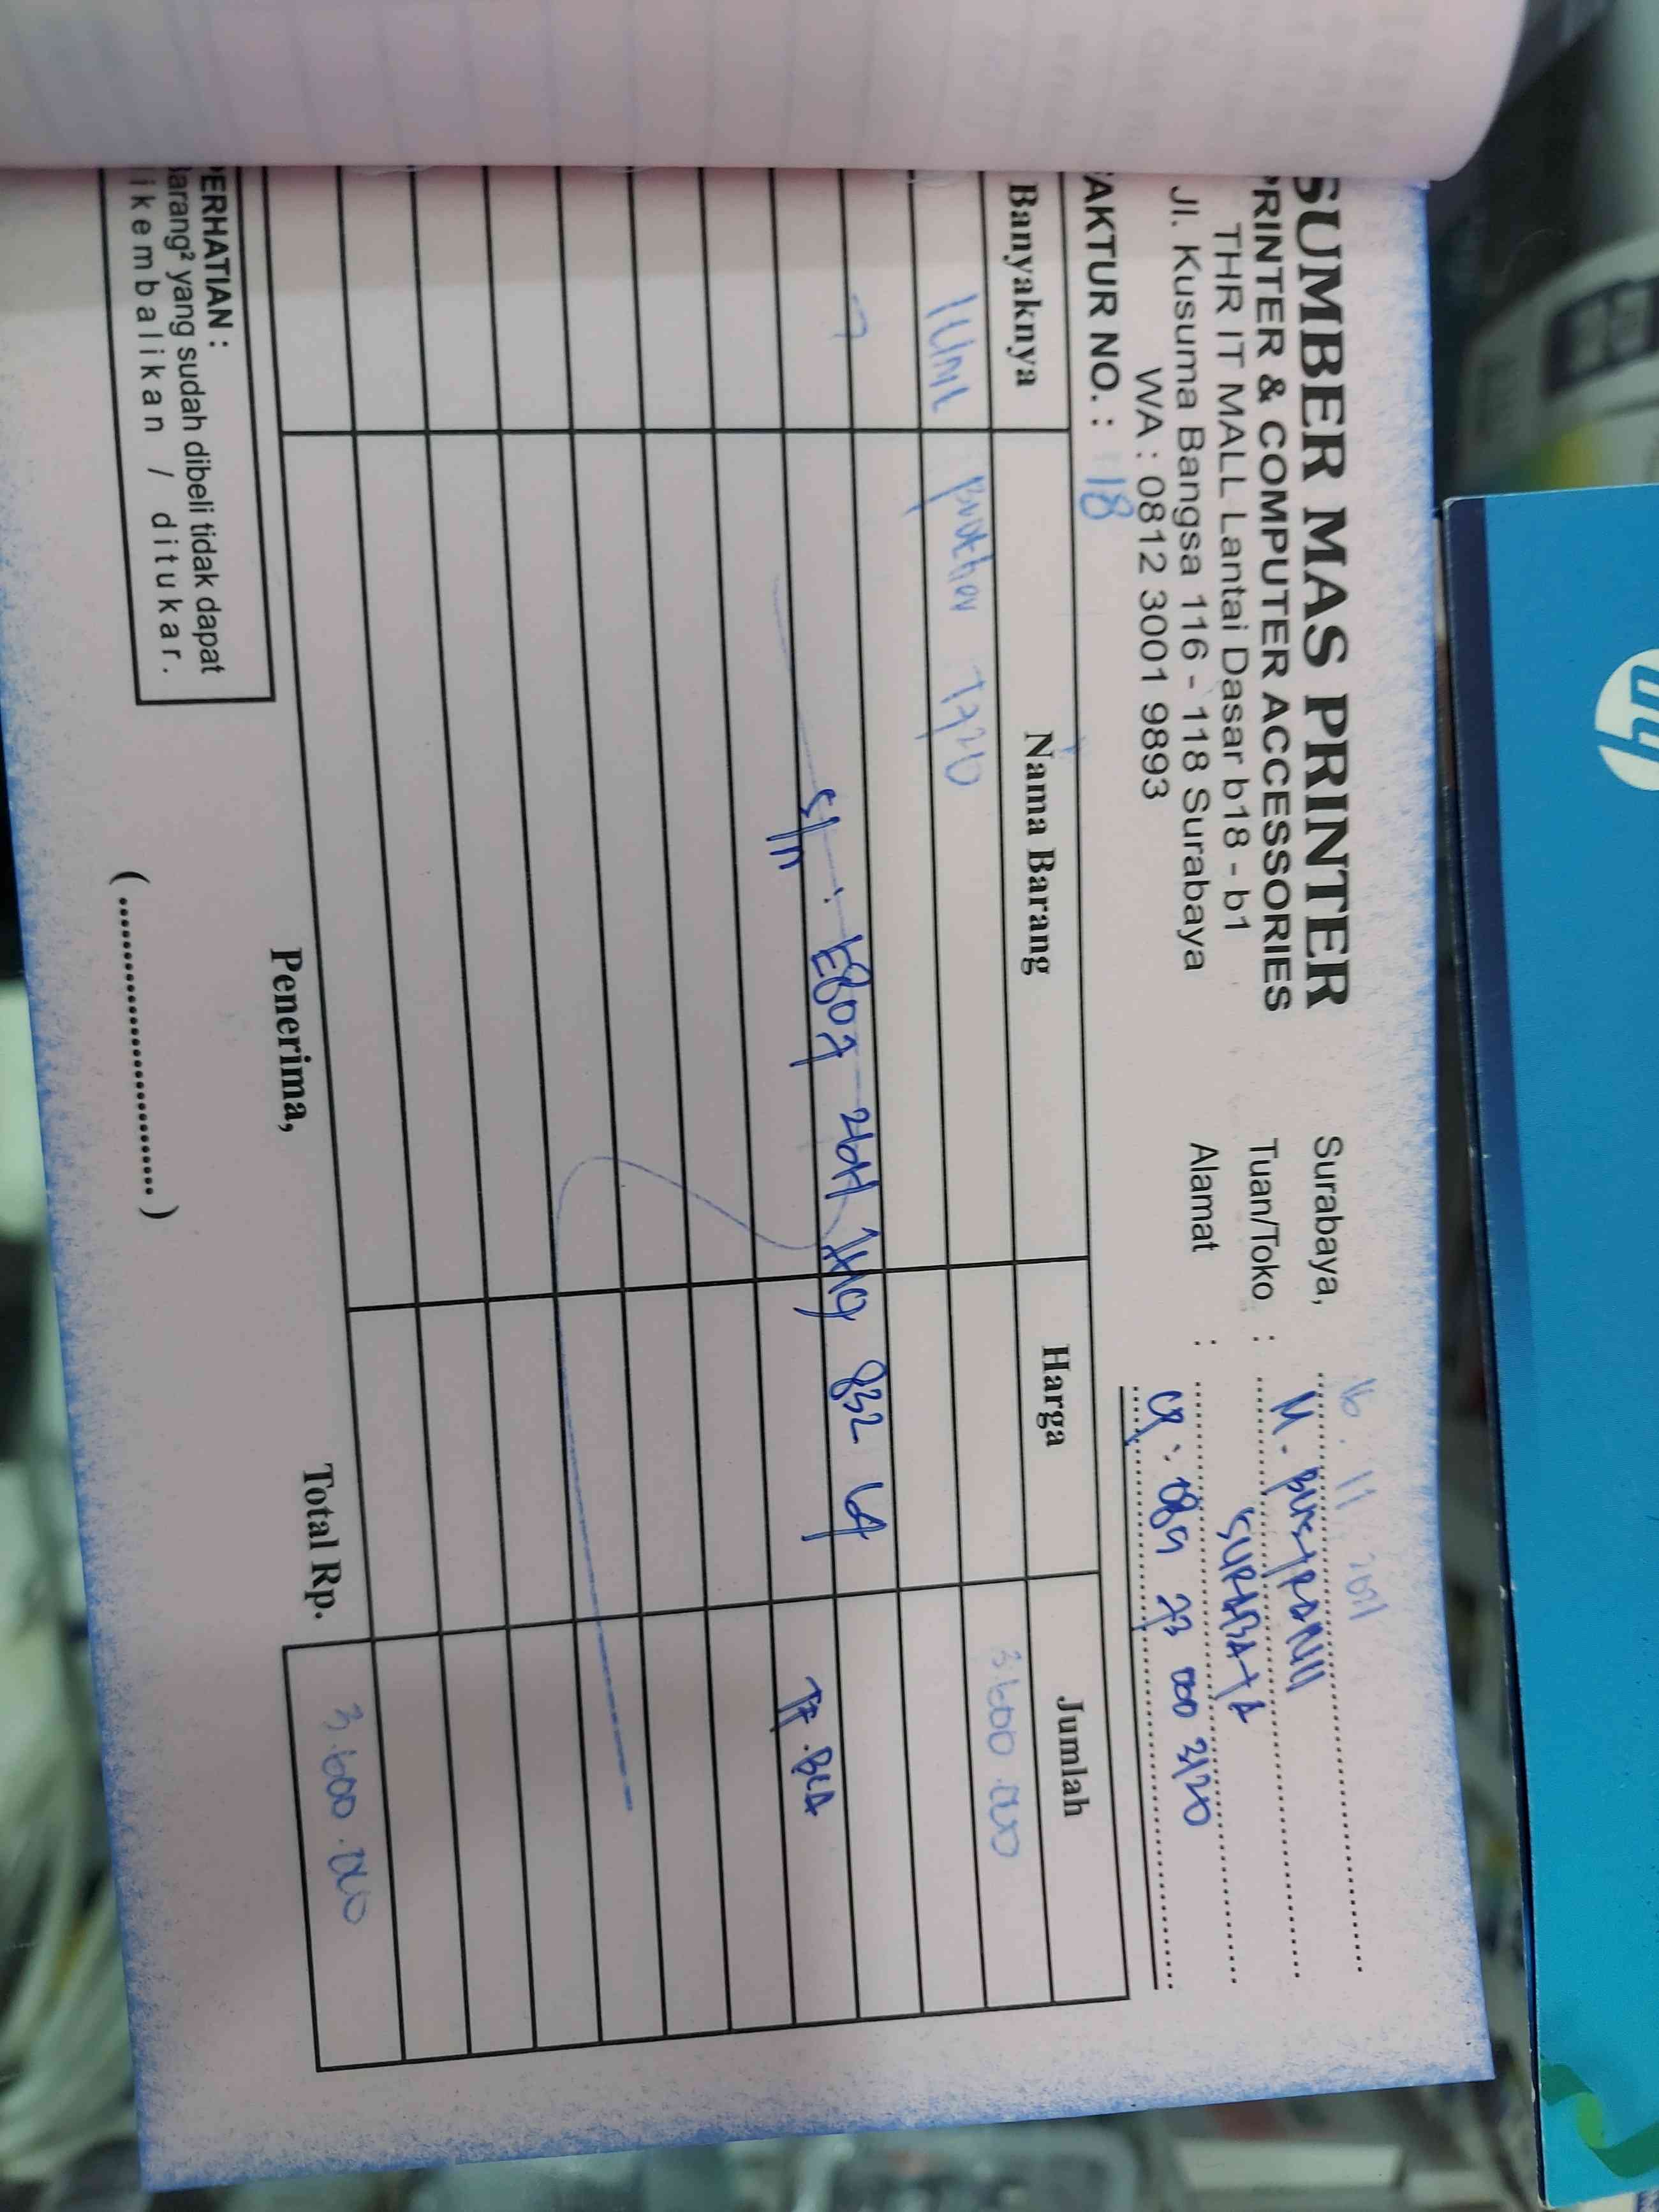 SUMBER MAS PRINTER
PRINTER & COMPUTER ACCESSORIES
THR IT MALL Lantai Dasar b18 - b1
Jl. Kusuma Bangsa 116 - 118 Surabaya
WA : 0812 3001 9893
Surabaya, 16 . 11
Tuan/Toko : M.
Alamat : SURABAYA
000 3120
FAKTUR NO. : 18
Banyaknya Nama Barang Harga Jumlah
1 Unit Brother T720 3.600.000
S/N : E807 832 TF.BCA
Total Rp. 3.600.000
PERHATIAN :
Barang² yang sudah dibeli tidak dapat
dikembalikan / ditukar.
Penerima,
(..............................)
hp